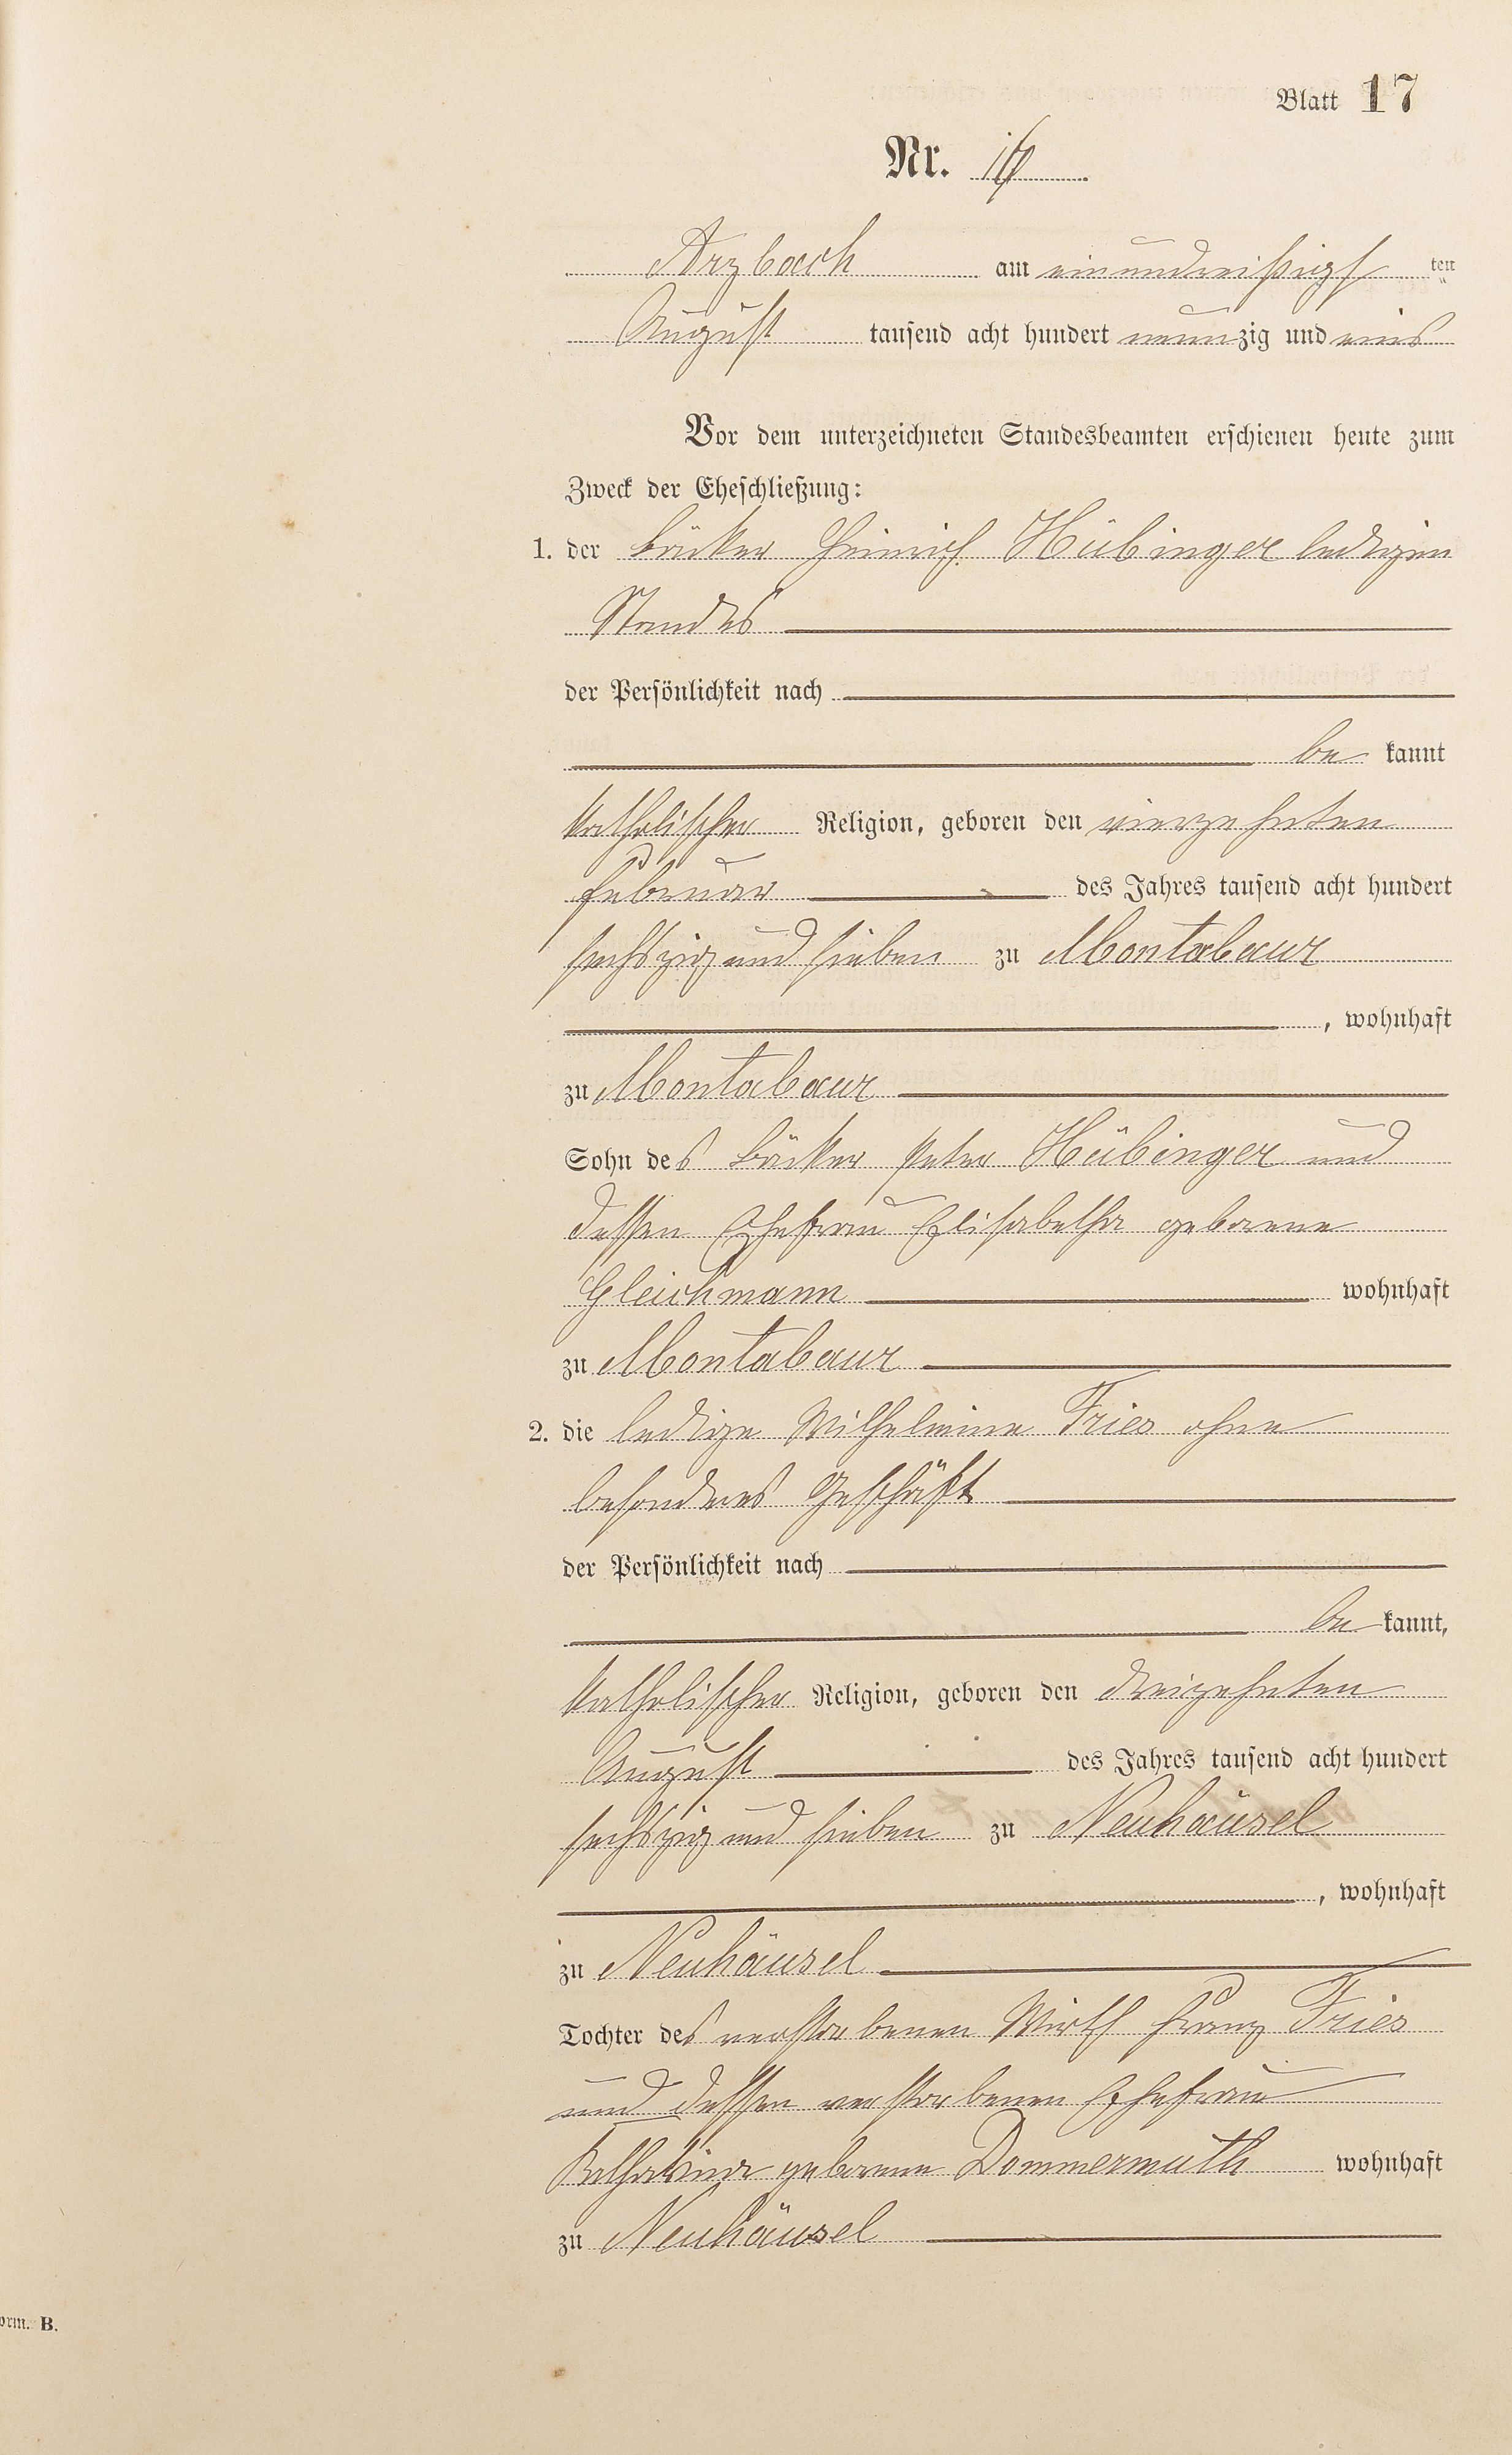 Blatt 17
Nr.
Arzbach am einundreißigsten
August tausend acht hundert neunzig und eins
Vor dem unterzeichneten Standesbeamten erschienen heute zum
Zweck der Eheschließung:
1. der Bäcker Heinrich Hübinger ledigen
Standes
der Persönlichkeit nach
be kannt
katholischer Religion, geboren den vierzehnten
Februar des Jahres tausend acht hundert
sechszig und sieben zu Montabaur
, wohnhaft
zu Montabaur
Sohn des Bäcker Peter Hübinger und
dessen Ehefrau Elisabetha geborene
Gleichmann wohnhaft
zu Montabaur
2. die ledige Wilhelmine Fries ohne
besonderes Geschäft
der Persönlichkeit nach
be kannt,
katholischer Religion, geboren den dreizehnten
August des Jahres tausend acht hundert
sechszig und sieben zu Neuhäusel
, wohnhaft
zu Neuhäusel
Tochter des verstorbenen Wirth Franz Fries
und dessen verstorbenen Ehefrau
Katharina geborene Dommermuth wohnhaft
zu Neuhäusel
orm. B.